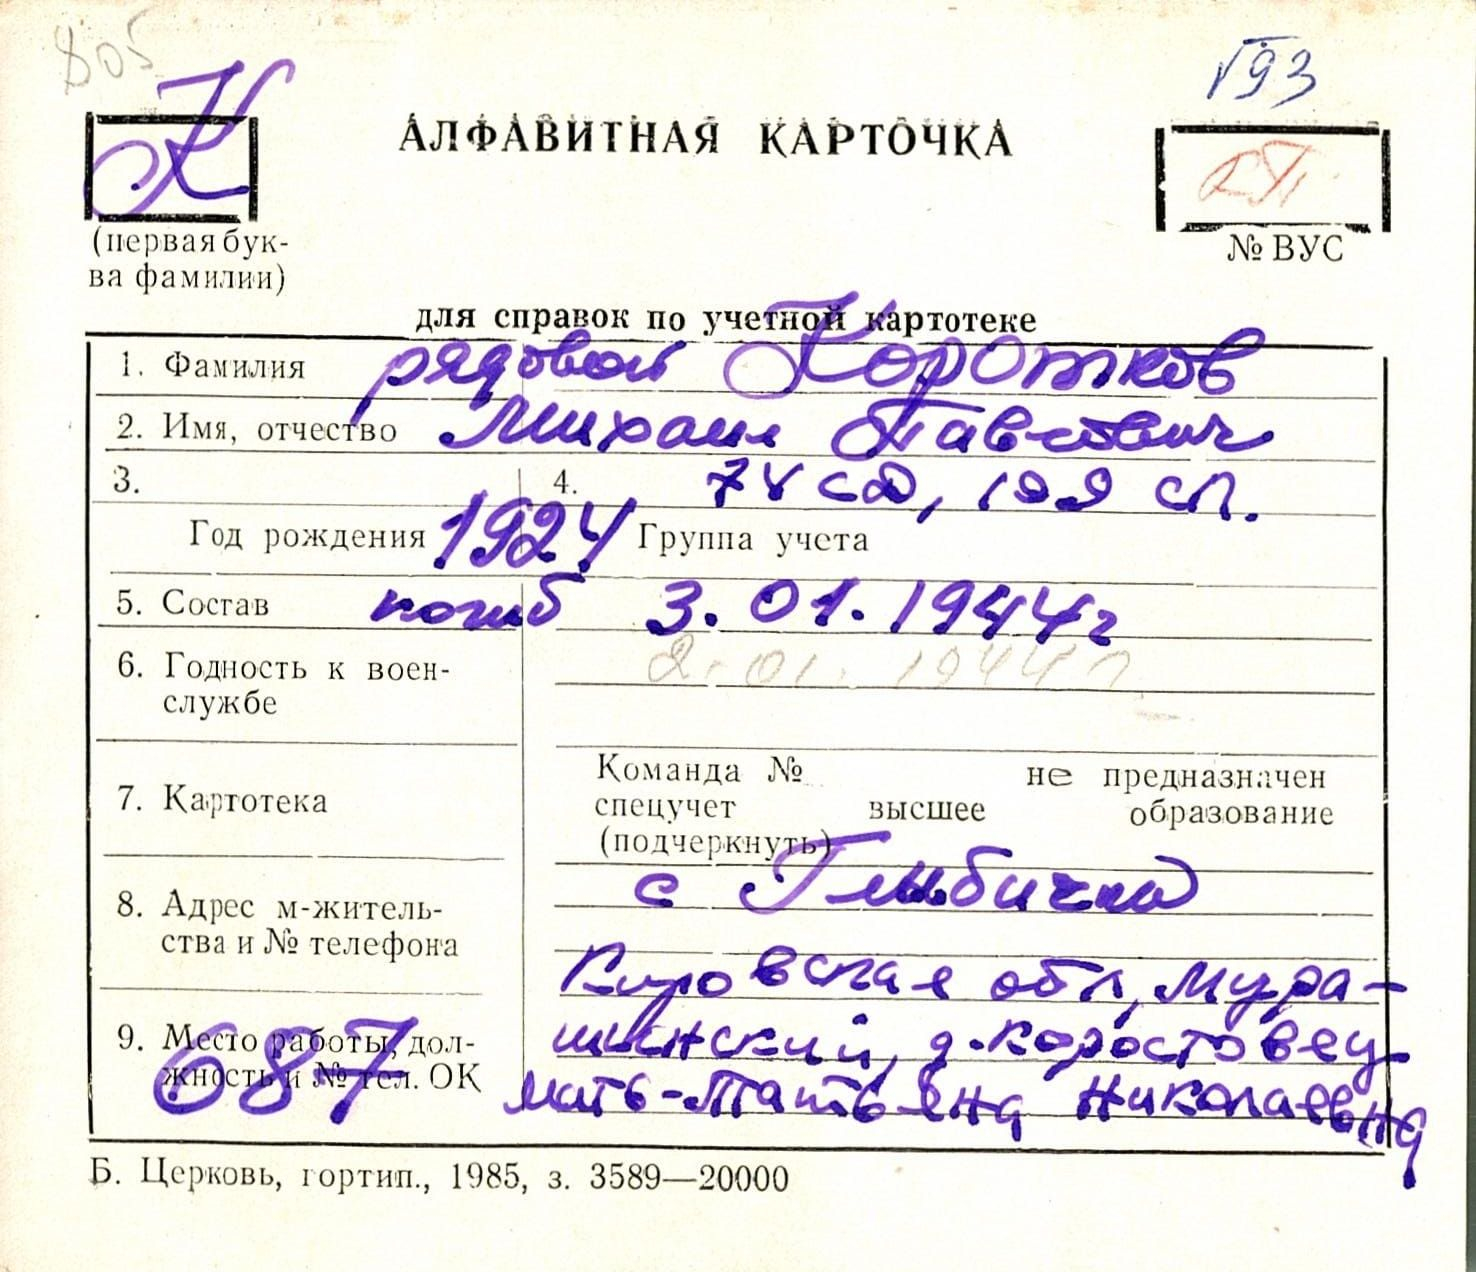 805
К
√93
АЛФАВИТНАЯ КАРТОЧКА
(первая бук-
ва фамилии)
№ ВУС
для справок по учетной картотеке
1. Фамилия рядовой Коротков
2. Имя, отчество Михаил Павлович
3. 4. 74 сд, 199 сп.
Год рождения 1924 Группа учета
5. Состав погиб 3.01.1944г
2.01.1944г
6. Годность к воен-
службе
7. Картотека
Команда № не предназначен
спецучет высшее образование
(подчеркнуть)
8. Адрес м-житель-
ства и № телефона
с Глыбички
Кировская обл, Мура-
шинский, д. Коростовец
9. Место работы, дол-
жность и № тел. ОК
687
мать-Татьяна Николаевна
Б. Церковь, гортип., 1985, з. 3589—20000